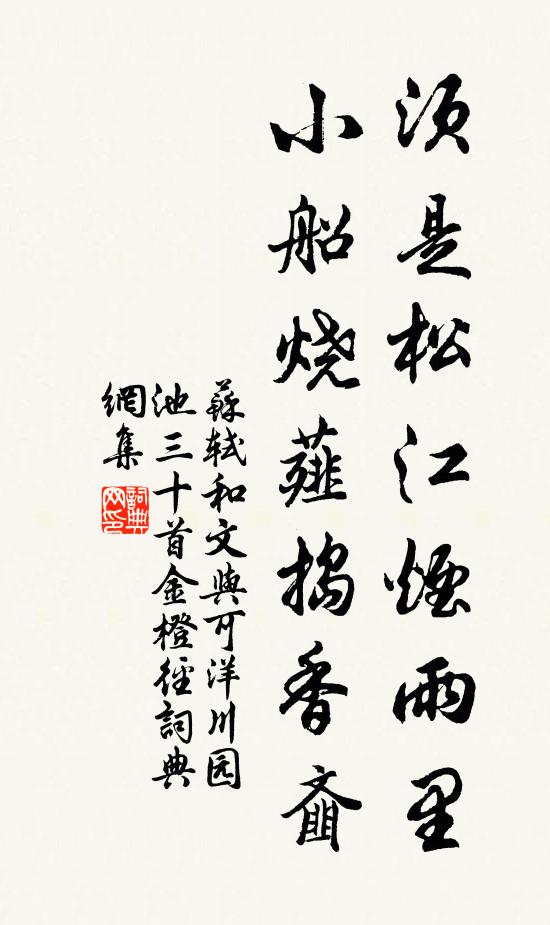 须是松江煙雨里
小船烧薤捣香齑
蘇轼和文與可洋川园
池三十首金橙徑詞典
網集
詞典
网印